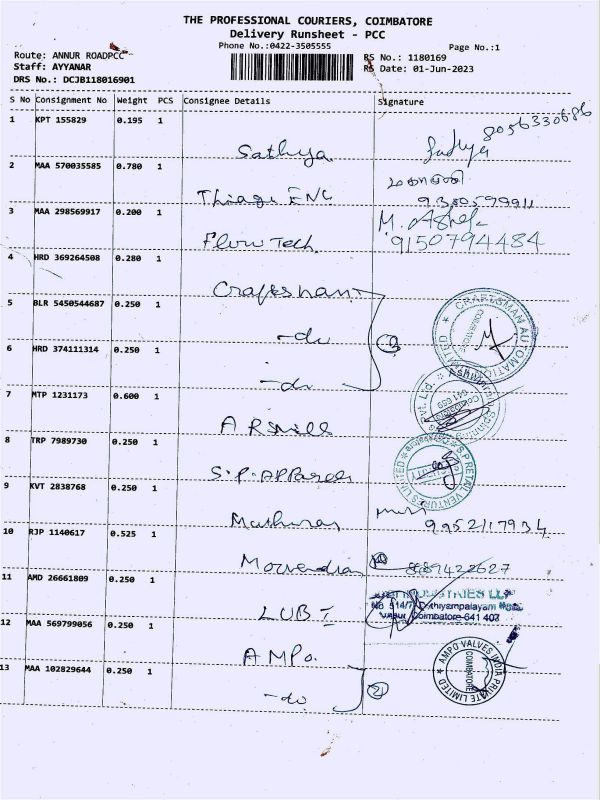 THE PROFESSIONAL COURIERS, COIMBATORE
Delivery Runsheet - PCC
Phone No.:0422-3505555
Page No.:1
Route: ANNUR ROADPCC
RS No.: 1180169
Staff: AYYANAR
RS Date: 01-Jun-2023
DRS No.: DCJB118016901
S No Consignment No Weight PCS Consignee Details Signature
1 KPT 155829 0.195 1
Sathya Sathya 8056330686
2 MAA 570035585 0.780 1
Thiagu ENG 9380599911
3 MAA 298569917 0.200 1
Flow Tech M. 9150794484
4 HRD 369264508 0.280 1
Craftsman
5 BLR 5450544687 0.250 1
-do 3 CRAFTSMAN AUTOMATION LIMITED COIMBATORE
6 HRD 374111314 0.250 1
-do
7 MTP 1231173 0.600 1
Pvt. Ltd. Coimbatore 641 659
8 TRP 7989730 0.250 1
S.P. Apparels S.P RETAIL VENTURES LIMITED
9 KVT 2838768 0.250 1
9952117934
10 RJP 1140617 0.525 1
8489422627
11 AMD 26661809 0.250 1
LUBI INDUSTRIES LLP
No 514/7 Coimbatore-641 407
12 MAA 569799056 0.250 1
AMPO.
13 MAA 102829644 0.250 1
-do 2 AMPO VALVES INDIA PRIVATE LIMITED COIMBATORE